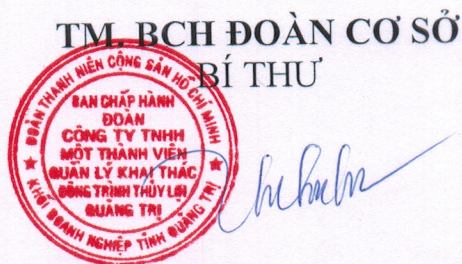 TM. BCH ĐOÀN CƠ SỞ
BÍ THƯ
ĐOÀN THANH NIÊN CỘNG SẢN HỒ CHÍ MINH
BAN CHẤP HÀNH
ĐOÀN
CÔNG TY TNHH
MỘT THÀNH VIÊN
QUẢN LÝ KHAI THÁC
CÔNG TRÌNH THỦY LỢI
QUẢNG TRỊ
KHỐI DOANH NGHIỆP TỈNH QUẢNG TRỊ